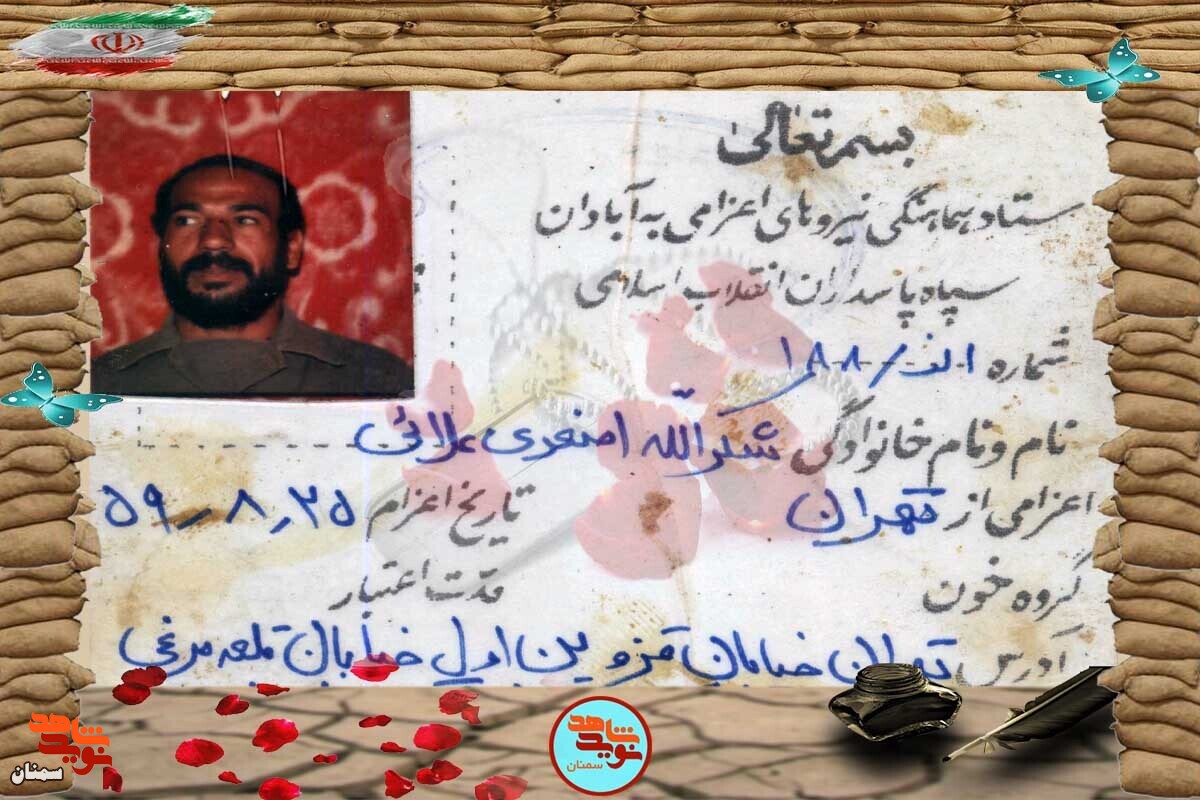 بسمه تعالی
ستاد هماهنگی نیروهای اعزامی به آبادان
سپاه پاسداران انقلاب اسلامی
شماره الف/۱۸۸
نام و نام خانوادگی شکراله اصغری علائی
اعزامی از تهران تاریخ اعزام ۲۵ر۸ر۵۹
گروه خون مدت اعتبار
آدرس تهران خیابان قزوین اول خیابان قلعه مرغی
نوید شاهد
سمنان
نوید شاهد
سمنان